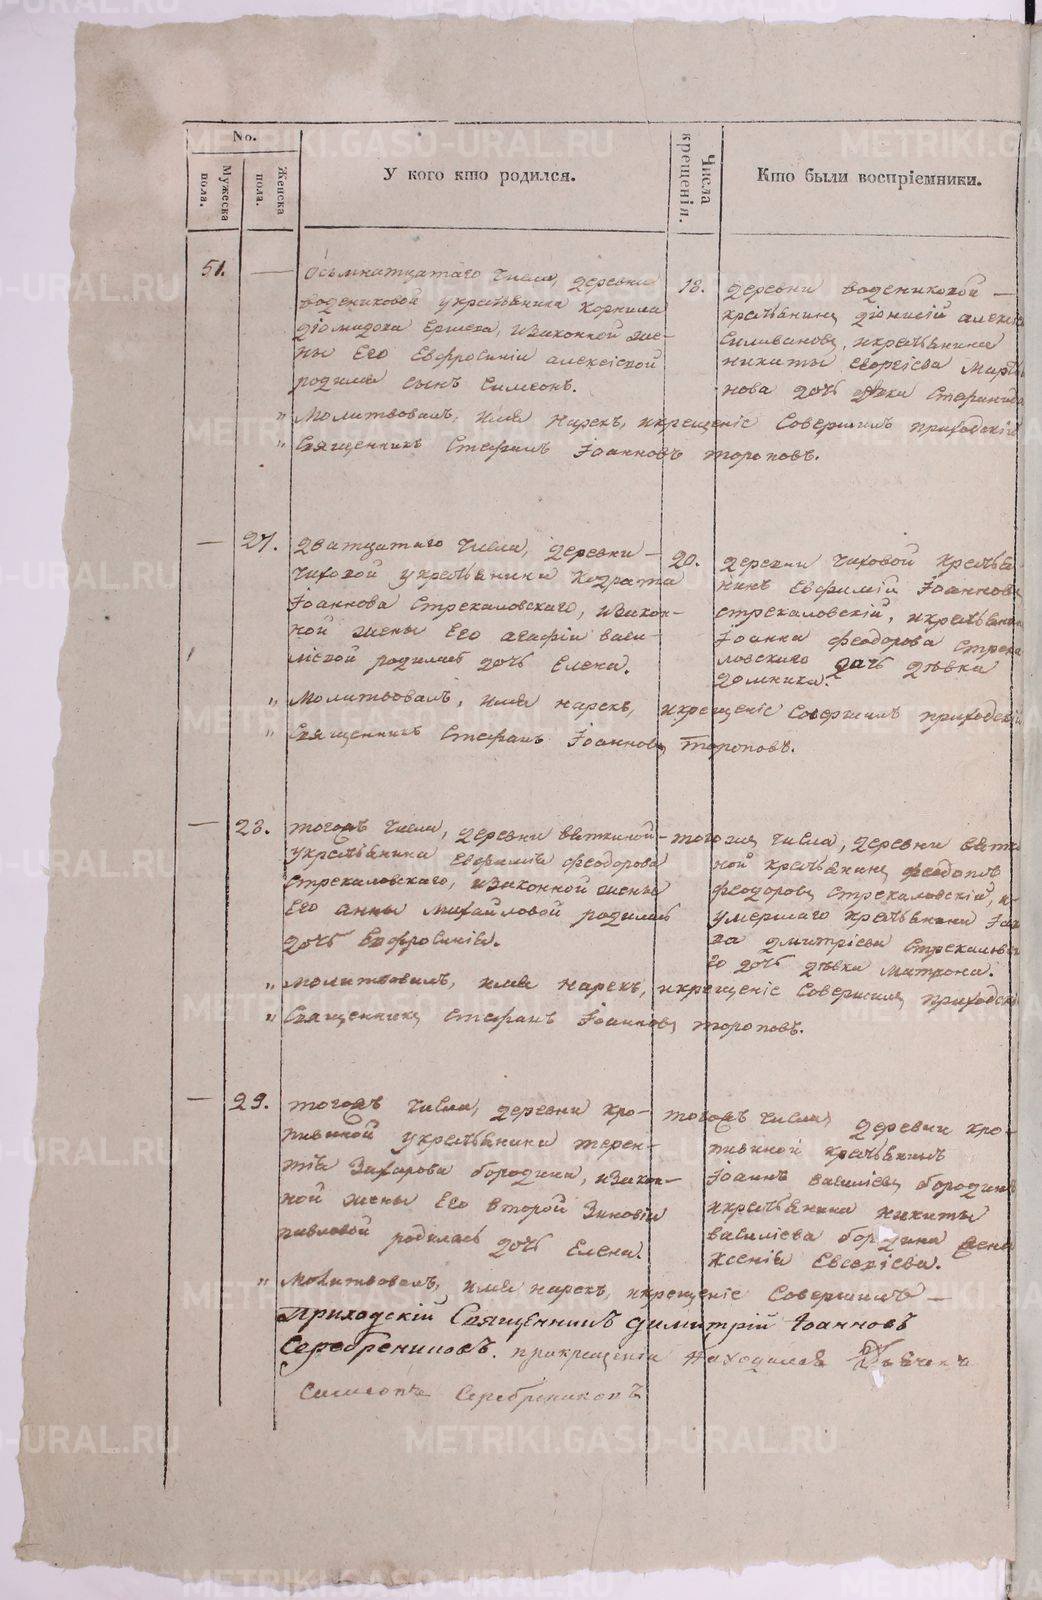 No.
Мужеска пола.
Женска пола.
У кого кто родился.
Числа крещенія.
Кто были воспріемники.
51.
Осьмнатцатаго числа, деревни
водениковой укрестьянина Корнила
діомидова Ершева, изаконной же-
ны Его Евфросиніи алексіевой
родился сынъ Симеонъ.
18.
деревни водениковой
крестьянинъ діонисій алексіевъ
Силивановъ, икрестьянина
никиты георгіева
нова дочь девка Стефанида
Молитвовалъ, имя нарекъ, икрещеніе Совершилъ приходскій
Священникъ Стефанъ Іоанновъ тороповъ.
27.
дватцатаго числа, деревни
Чиховой укрестьянина Кодрата
Іоаннова Стрекаловскаго, изакон-
ной жены Его агафіи васи-
ліевой родилась дочь Елена.
20.
деревни Чиховой Крестья-
нинъ Евфимій Іоанновъ
стрекаловскій, икрестьянина
Іоанна феодорова Стрека
ловскаго дочь дѣвка
домника.
Молитвовалъ, имя нарекъ, икрещеніе Совершилъ приходскій
Священникъ Стефанъ Іоанновъ Тороповъ.
28.
тогожъ числа, деревни вяткиной
укрестьянина Евфимія феодорова
Стрекаловскаго, изаконной жены
Его анны михайловой родилась
дочь Евфросинія.
тогожъ числа, деревни вятки
ной крестьянинъ
феодоровъ Стрекаловскій, и
умершаго крестьянина
дмитріева Стрекаловска
го дочь дѣвка матрона.
молитвовалъ, имя нарекъ, икрещеніе Совершилъ приходскій
Священникъ Стефанъ Іоанновъ тороповъ.
29.
тогожъ числа, деревни кро-
пивиной укрестьянина терен-
тія Захарова бородина, изакон-
ной жены Его второй Зиновіи
павловой родилась дочь Елена.
тогожъ числа, деревни кро-
пивиной крестьянинъ
Іоаннъ василіевъ бородинъ
икрестьянина никиты
василіева бородина жена
Ксенія Евсевіева.
Молитвовалъ, имя нарекъ, икрещеніе Совершилъ
Приходскій Священникъ Димитрій Іоанновъ
Серебрениковъ. прикрещеніи находился Дьячекъ
Симеонъ Серебрениковъ
METRIKI.GASO-URAL.RU